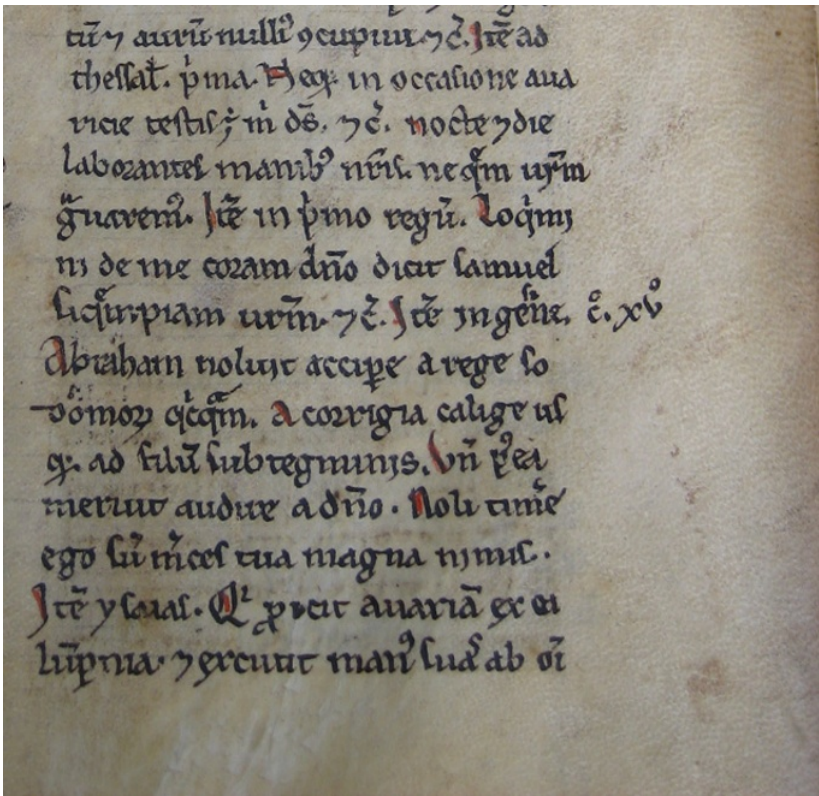 tū ⁊ aurū nulli᷒ ꝯcupiui ⁊ c̄. Itē ad
thessaƚ. p̍ma. Neqꝫ in occasione aua
ricie testis ē m̍ ds̄. ⁊ c̄. nocte ⁊ die
laborantes manibꝰ nr̄is. ne quem ur̄m
g̃uaremꝰ. Itē in p̍mo regū. Loq̍mi
ni de me coram dn̄o dicit samuel
si ur̄m. ⁊ c̄. Itē in gen̄. c̊. xv̊
Abraham noluit accipe a rege so
domoꝝ q̍cq̃m. A corrigia calige us
qꝫ ad filū subtegminis. Vn̄ p̱ea
meruit audire a dn̄o. Noli timē
ego sū m̄ces tua magna nimis.
Itē ysaias. Qi ꝓicit auariā ex
⁊ excutit manꝰ suas ab oī